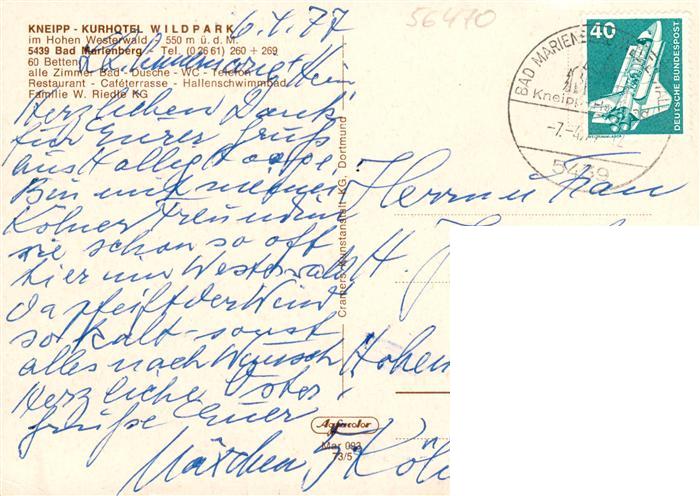 KNEIPP - KURHOTEL WILDPARK
im Hohen Westerwald / 550 m ü. d. M.
5439 Bad Marienberg - Tel. (0 26 61) 260 + 269
60 Betten
alle Zimmer Bad - Dusche - WC - Telefon
Restaurant - Caféterrasse - Hallenschwimmbad
Familie W. Riedle KG
6.4.77
Herzlichen Dank
für Eurer Gruß
aus
Bin mit meiner
Kölner Freundin
wie schon so oft
hier im Westerwald
da pfeift der Wind
so kalt - sonst
alles nach Wunsch
Herzliche Oster-
grüße Euer
Märchen
Cramers Kunstanstalt KG, Dortmund
Agfacolor
Mar 093
73/5
56470
BAD MARIENB
Kneipp
-7.-4.
5439
40
DEUTSCHE BUNDESPOST
Herrn u Frau
H. J
Hohen
5 Köln